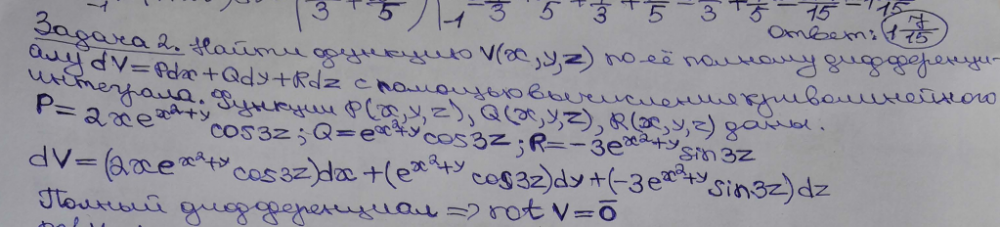 3 + 5 ) |-1 = 3 + 5 + 1/3 + 1/5 = 3 + 5 = 15 = 1 15
Ответ: 1 7/15
Задача 2. Найти функцию V(x,y,z) по её полному дифференци-
алу dV=Pdx+Qdy+Rdz с помощью вычисления криволинейного
интеграла. Функции P(x,y,z), Q(x,y,z), R(x,y,z) даны.
P=2xe^{x²+y} cos3z; Q=e^{x²+y}cos3z; R=-3e^{x²+y}sin3z
dV=(2xe^{x²+y} cos3z)dx+(e^{x²+y} cos3z)dy+(-3e^{x²+y}sin3z)dz
Полный дифференциал => rot V=0̄